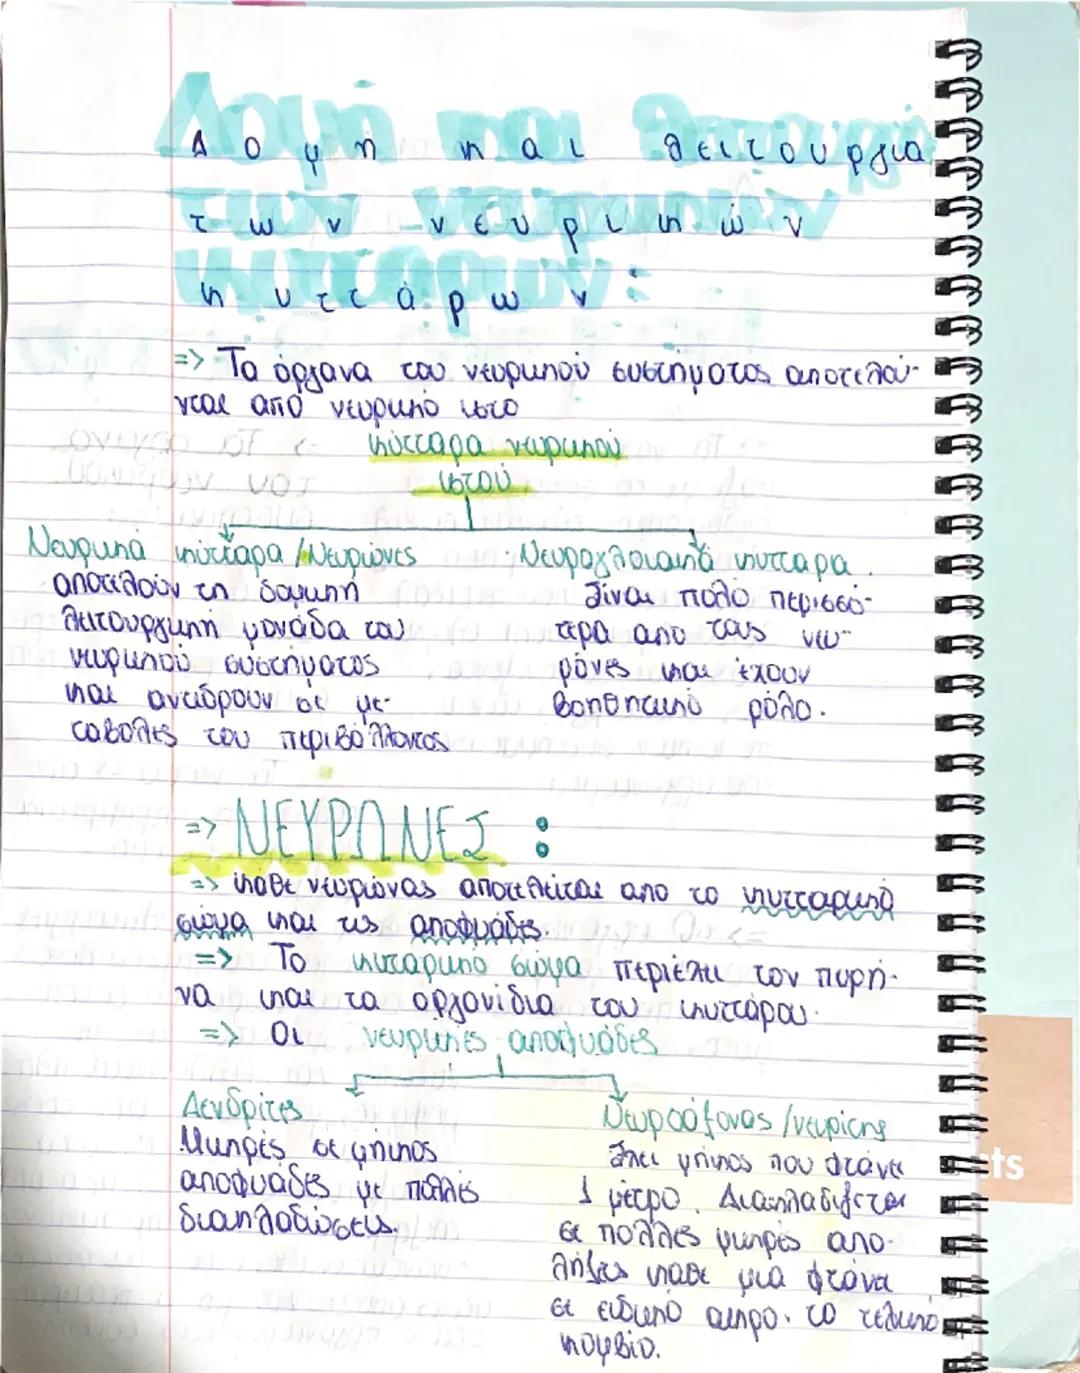 Δομή και λειτουργία
των νευρικών
κυττάρων:
Δομή και λειτουργία
των νευρικών
κυττάρων
=> Τα όργανα του νευρικού συστήματος αποτελού-
νται από νευρικό ιστό
κύτταρα νευρικού
ιστού
Νευρικά κύτταρα / Νευρώνες
αποτελούν τη δομική
λειτουργική μονάδα του
νευρικού συστήματος
και αντιδρούν σε με-
ταβολές του περιβάλλοντος
Νευρογλοιακά κύτταρα.
Είναι πολύ περισσό-
τερα από τους νευ-
ρώνες και έχουν
βοηθητικό ρόλο.
=> ΝΕΥΡΩΝΕΣ :
=> κάθε νευρώνας αποτελείται απο το κυτταρικό
σώμα και τις αποφυάδες.
=> Το κυταρικό σώμα περιέχει τον πυρή-
να και τα οργανίδια του κυττάρου.
=> Οι νευρικές αποφυάδες
Δενδρίτες
Μικρές σε μήκος
αποφυάδες με πολλές
διακλαδώσεις.
Νευράξονας / νευρίτης
Έχει μήκος που φτάνει
1 μέτρο. Διακλαδίζεται
σε πολλές μικρές απο-
λήξεις κάθε μια φτάνει
σε ειδικό άκρο. το τελικό
κομβίο.
cts